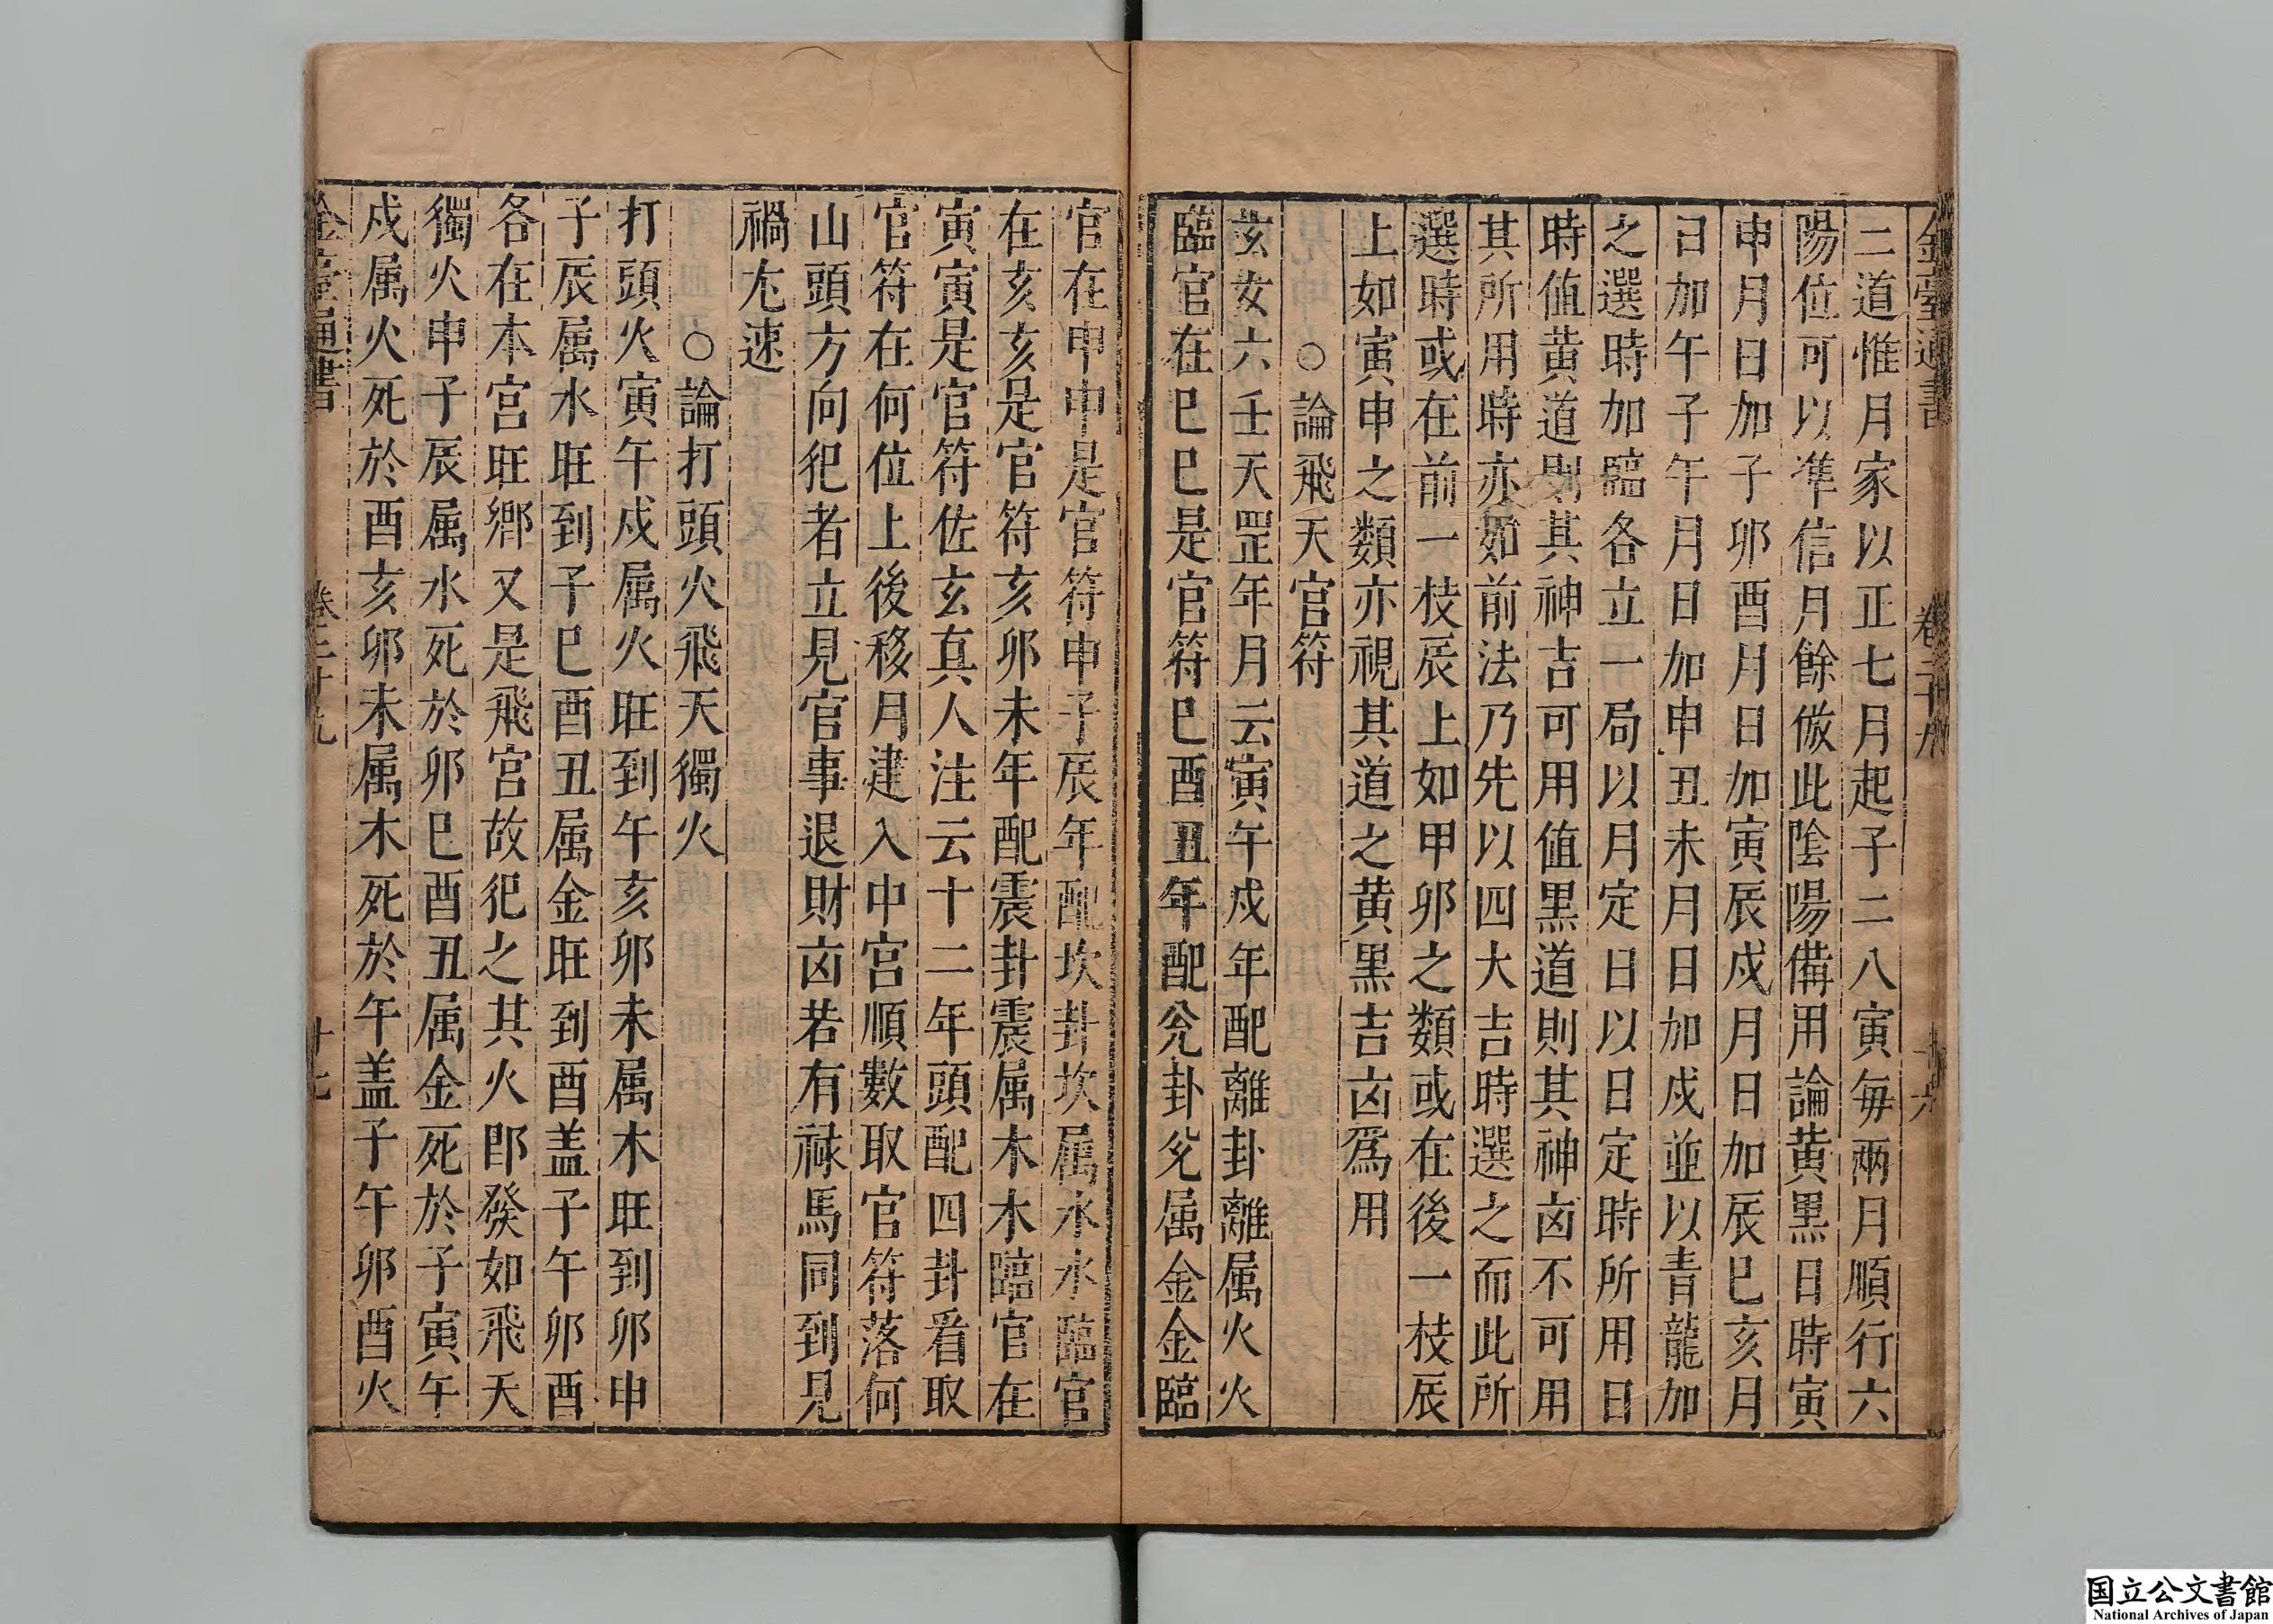 二道惟月家以正七月起子二八寅毎兩月順行六
陽位可以準信月餘倣此陰陽備用論黃黒日時寅
申月日加子卯酉月日加寅辰戍月日加辰巳亥月
日加午子午月日加申丑未月日加戍並以青龍加
之選時加臨各立一局以月定日以日定時所用日
時值黃道則其神吉可用值黒道則其神凶不可用
其所用時亦如前法乃先以四大吉時選之而此所
選時或在前一枝辰上如甲卯之類或在後一枝辰
上如寅申之類亦視其道之黃黒吉凶爲用
○論飛天官符
玄女六壬天罡年月云寅午戍年配離卦離属火火
臨官在巳巳是官符巳酉丑年配兊卦兊属金金臨
官在申申是官符申子辰年配坎卦坎属水水臨官
在亥亥是官符亥卯未年配震卦震属木木臨官在
寅寅是官符佐玄真人注云十二年頭配四卦看取
官符在何位上後移月建入中宫順數取官符落何
山頭方向犯者立見官事退財凶若有禄馬同到見
禍尤速
○論打頭火飛天獨火
打頭火寅午戍属火旺到午亥卯未属木旺到卯申
子辰属水旺到子巳酉丑属金旺到酉盖子午卯酉
各在本宫旺鄉又是飛宫故犯之其火即發如飛天
獨火申子辰属水死於卯巳酉丑属金死於子寅午
戍属火死於酉亥卯未属木死於午盖子午卯酉火
金臺通書 卷二十九 十七
国立公文書館
National Archives of Japan